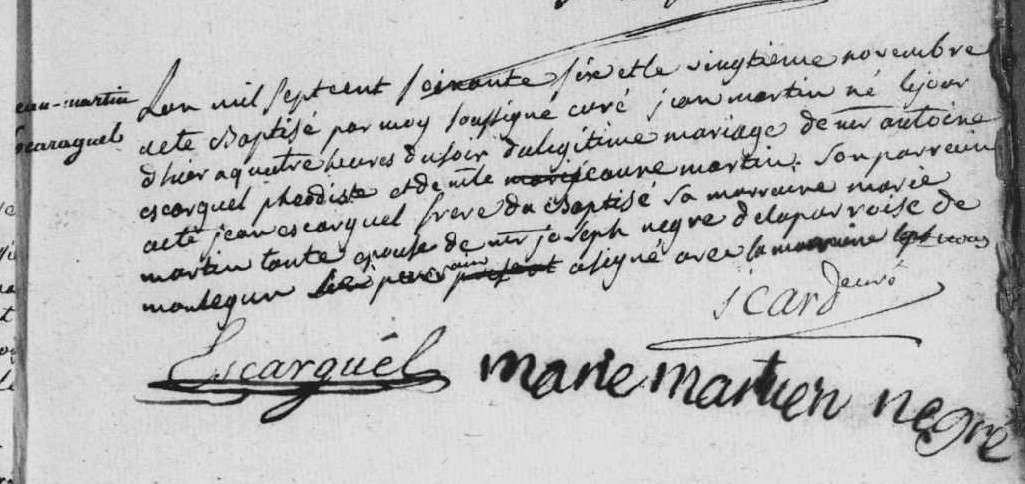 jean-martin
Escaraguel
Lan mil Septcent Soixante Sixe et le vingtieme novembre
acte Baptisé par moy Soussigné curé jean martin né lejour
dhier a quatre heures du soir du legitime mariage de mr antoine
escarguel pheodiste et de mlle marie jeanne martin. Son parrain
acté jean escarguel frere du Baptisé Sa marraine marie
martin tante epouse de mr joseph negre delaparroise de
montegun Le parrain present a signé avec la marraine et nous
icard curé
Escarguél marie martien negré